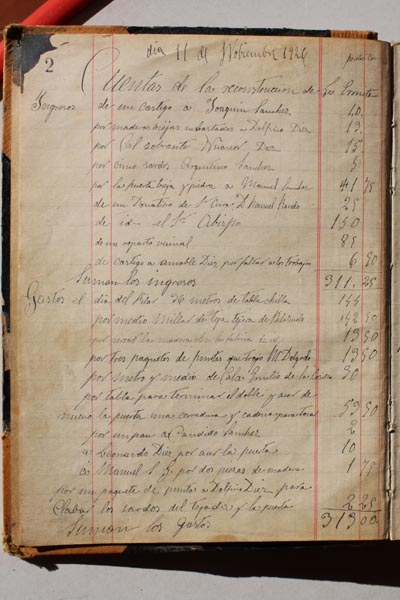 2
dia 11 de Nobiembre 1926
Cuentas de la reconstrucion de la Ermita
Ingresos de un castigo a Joaquin Sanchez 20.
por maderas biejas subastadas a Dolfino Diez 13.
por Cal sobrante Nicanor Diez 15
por cinco sardos Argentino Sanchez 5
por la puerta bieja y piedra a Manuel Sanchez 41 75
de un Donativo de Sr Cura D. Manuel 25
de id - el Sr Obispo 150
de un reparto vecinal 85
de castigo a amable Diez por faltar a los trabajos 6 50
Suman los ingresos 311.25
Gastos el dia del Pilar 26 metros de tabla chilla 144
por medio millar de teja tejera de 142 50
la madera de la fabrica 13 50
por tres paquetes de puntas que trajo M. Delgado 13 50
por metro y medio de Cal a Emilio de la 30
por tabla para terminar el doble y acer de
nuevo la puerta una cerradura y cadena para tocar 53 50
por un pan a Candido Sanchez 2
a Leonardo Diez por acer la puerta 10
a Manuel S. G. por dos piezas de madera 1 75
por un paquete de puntas a Dolfino Diez para
Clabar los sardos del tejado y la puerta 2 25
Suman los Gastos 313 00